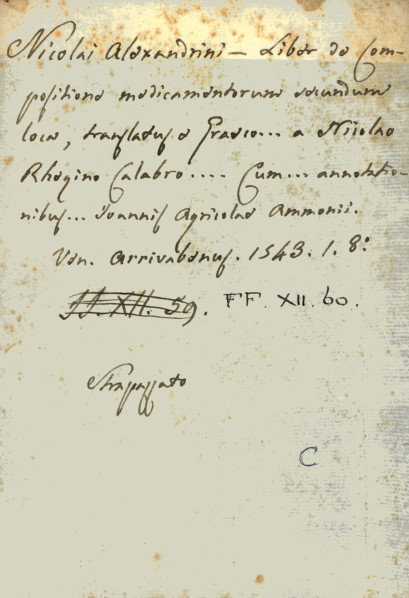 Nicolai Alexandrini — Liber de Com-
positione medicamentorum secundum
loca, translatus e Graeco... a Nicolao
Rhegino Calabro.... Cum... annotatio-
nibus... Joannis Agricolae Ammonii.
Ven. Arrivabenus. 1543. 1. 8:
FF. XII. 59. FF. XII. 60.
Strapazzato
C